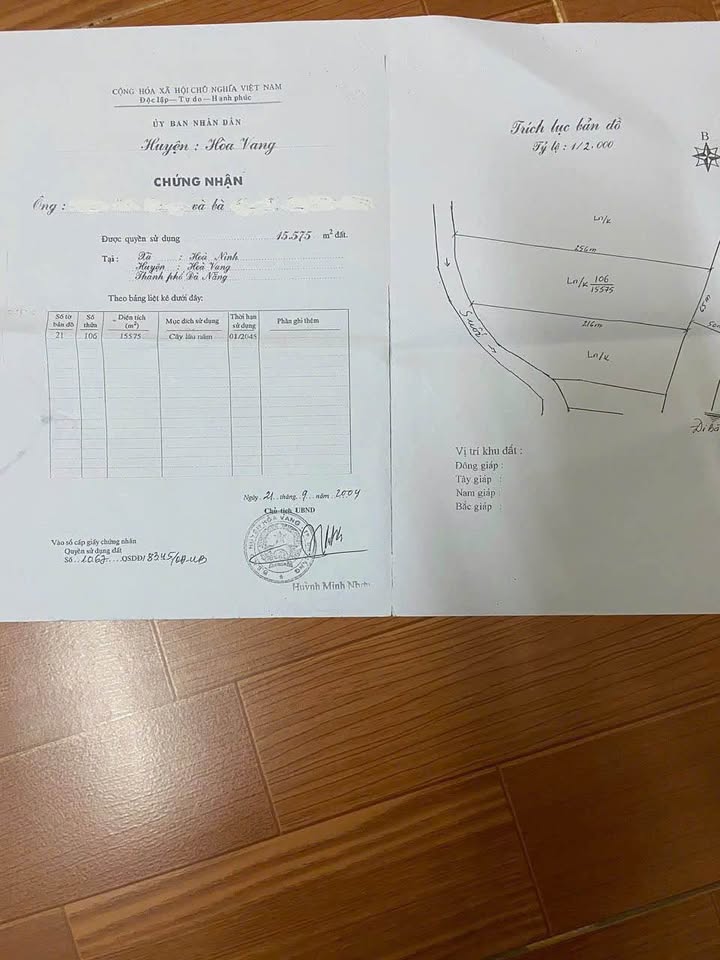 CỘNG HÒA XÃ HỘI CHỦ NGHĨA VIỆT NAM
Độc lập — Tự do — Hạnh phúc
ỦY BAN NHÂN DÂN
Huyện : Hòa Vang
CHỨNG NHẬN
Ông : và bà
Được quyền sử dụng 15.575 m² đất.
Tại : Xã : Hoà Ninh
Huyện : Hoà Vang
Thành phố Đà Nẵng
Theo bảng liệt kê dưới đây:
Số tờ bản đồ Số thửa Diện tích (m²) Mục đích sử dụng Thời hạn sử dụng Phần ghi thêm
21 106 15575 Cây lâu năm 01/2045
Ngày 21 tháng 9 năm 2004
Chủ tịch UBND
Huỳnh Minh
Vào sổ cấp giấy chứng nhận
Quyền sử dụng đất
Số 2067 QSDĐ/
Trích lục bản đồ
Tỷ lệ : 1/2.000
B
Ln/k
256m
Ln/k 106
15575
65m
216m
Suối
Ln/k
Vị trí khu đất :
Đông giáp :
Tây giáp :
Nam giáp :
Bắc giáp :